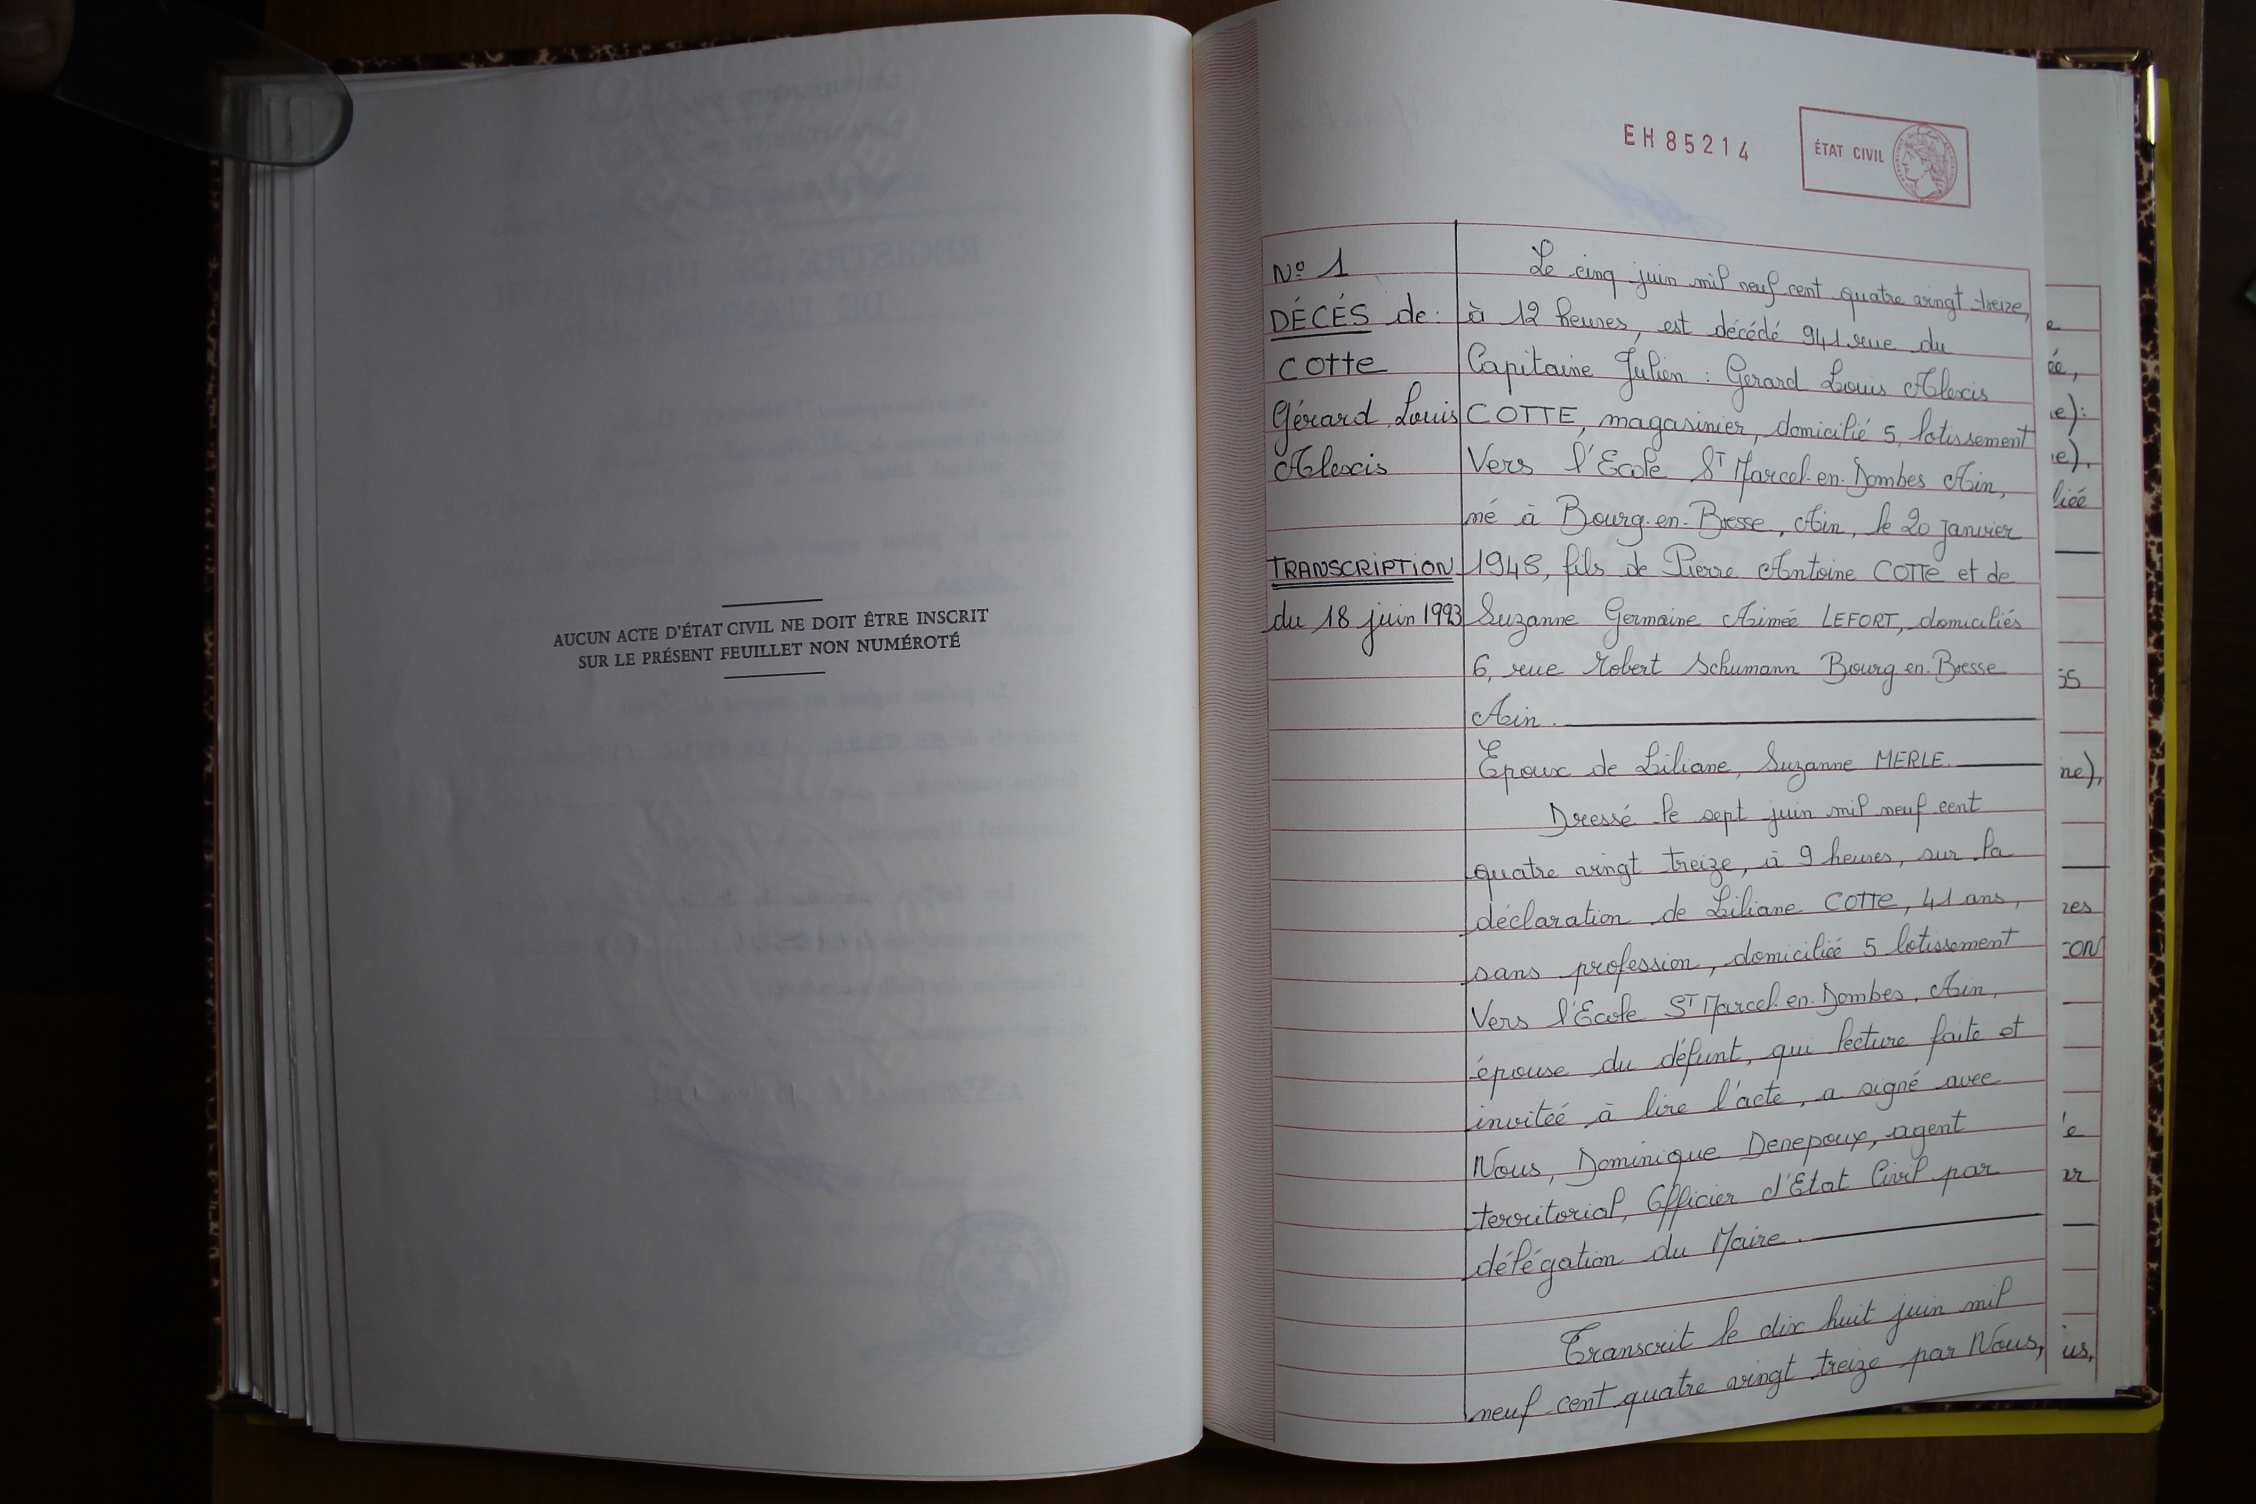 AUCUN ACTE D'ÉTAT CIVIL NE DOIT ÊTRE INSCRIT
SUR LE PRÉSENT FEUILLET NON NUMÉROTÉ
EH 85214
ÉTAT CIVIL
N° 1
DÉCÉS de :
COTTE
Gérard Louis
Alexis
TRANSCRIPTION
du 18 juin 1993
Le cinq juin mil neuf cent quatre vingt treize,
à 12 heures, est décédé 941 rue du
Capitaine Julien : Gerard Louis Alexis
COTTE, magasinier, domicilié 5, lotissement
Vers l'Ecole St Marcel-en-Dombes Ain,
né à Bourg-en-Bresse, Ain, le 20 janvier
1948, fils de Pierre Antoine COTTE et de
Suzanne Germaine Aimée LEFORT, domiciliés
6, rue Robert Schumann Bourg-en-Bresse
Ain.
Epoux de Liliane, Suzanne MERLE.
Dressé le sept juin mil neuf cent
quatre vingt treize, à 9 heures, sur la
déclaration de Liliane COTTE, 41 ans,
sans profession, domiciliée 5 lotissement
Vers l'Ecole St Marcel-en-Dombes, Ain,
épouse du défunt, qui lecture faite et
invitée à lire l'acte, a signé avec
Nous, Dominique Denepoux, agent
territorial, Officier d'Etat Civil par
délégation du Maire.
Transcrit le dix huit juin mil
neuf cent quatre vingt treize par Nous,